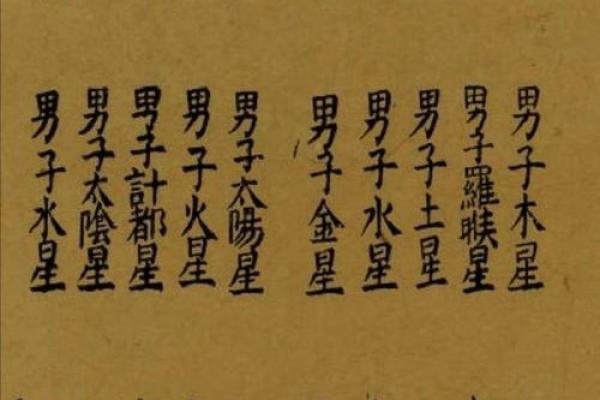 男子木星
男子羅睺星
男子土星
男子水星
男子金星
男子太陽星
男子火星
男子計都星
男子太陰星
男子水星